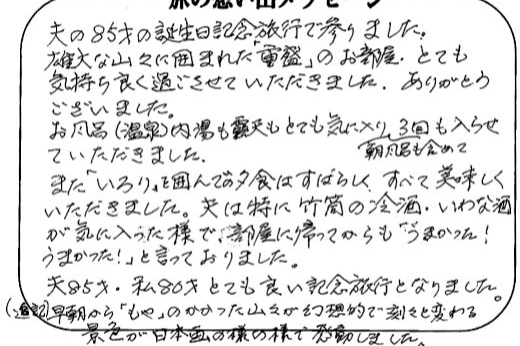 旅の思い出メッセージ
夫の85才の誕生日記念旅行で参りました。
雄大な山々に囲まれた「重盛」のお部屋、とても
気持ち良く過ごさせていただきました。ありがとう
ございました。
お風呂(温泉)内湯も露天もとても気に入り、3回も入らせ
朝風呂も含めて
ていただきました。
また「いろり」を囲んでの夕食はすばらしく、すべて美味しく
いただきました。夫は特に竹筒の冷酒・いわな酒
が気に入った様で、部屋に帰ってからも「うまかった!
うまかった!」と言っておりました。
夫85才・私80才とても良い記念旅行となりました。
(追記)早朝から「もや」のかかった山々が幻想的で刻々と変わる
景色が日本画の様の様で感動しました。